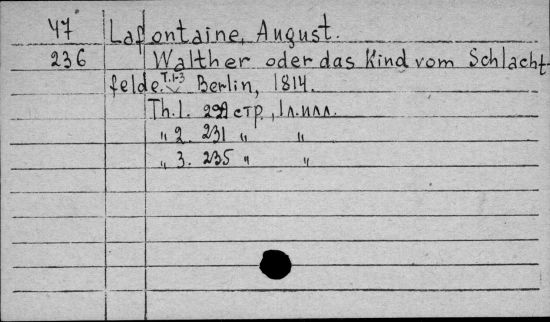 47 Lafontaine, August.
236 Walther oder das Kind vom Schlacht-
felde. T.1-3 Berlin, 1814.
Th.1. стр., 1 л. илл.
" 2. 231 " "
" 3. 235 " "